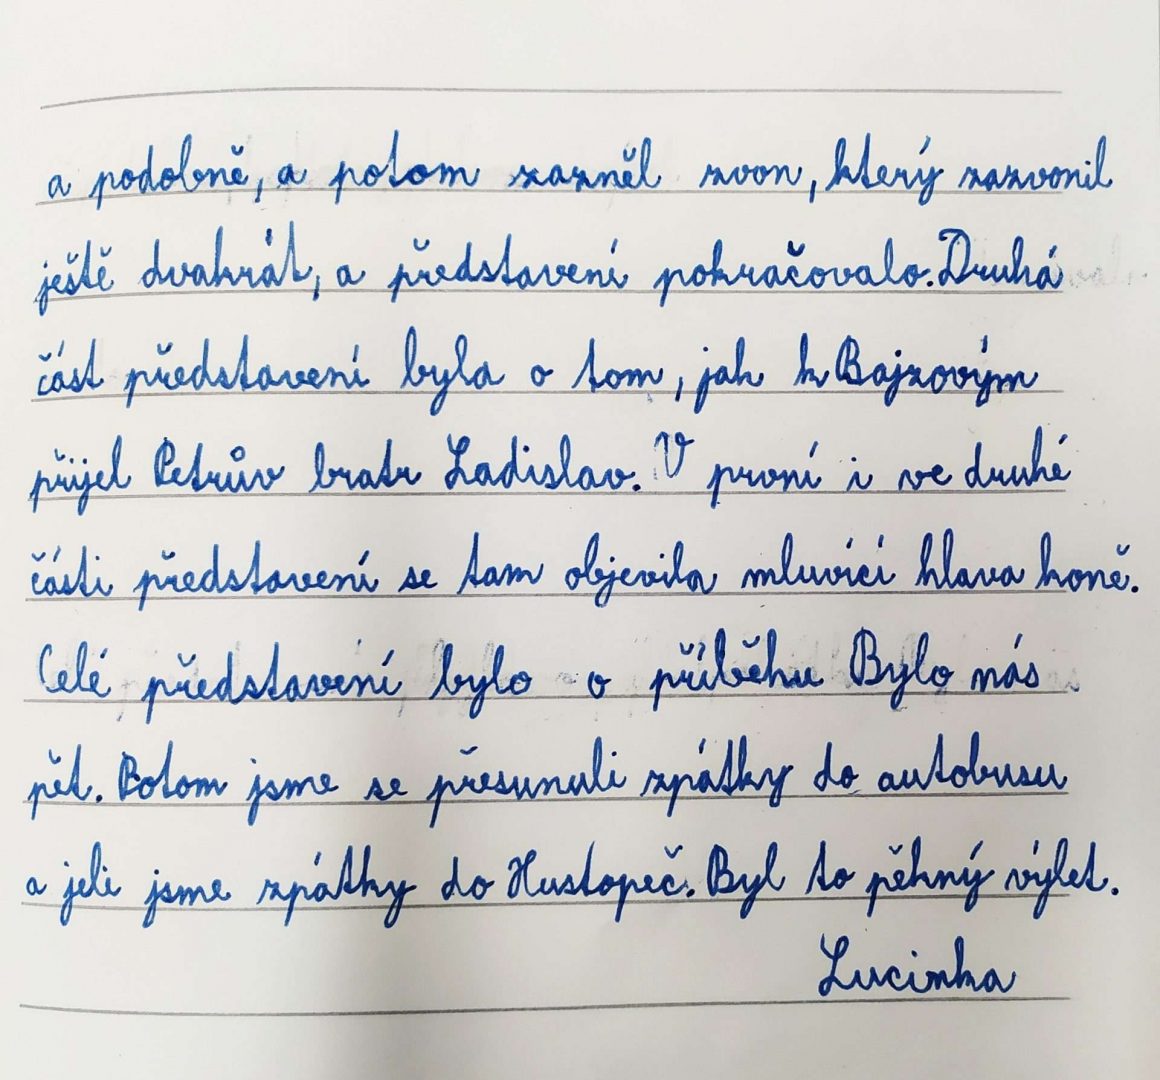 a podobně, a potom zazněl zvon, který zazvonil
ještě dvakrát, a představení pokračovalo. Druhá
část představení byla o tom, jak k Bajzovým
přijel Petrův bratr Ladislav. V první i ve druhé
části představení se tam objevila mluvící hlava koně.
Celé představení bylo o příběhu Bylo nás
pět. Potom jsme se přesunuli zpátky do autobusu
a jeli jsme zpátky do Hustopeč. Byl to pěkný výlet.
Lucinka